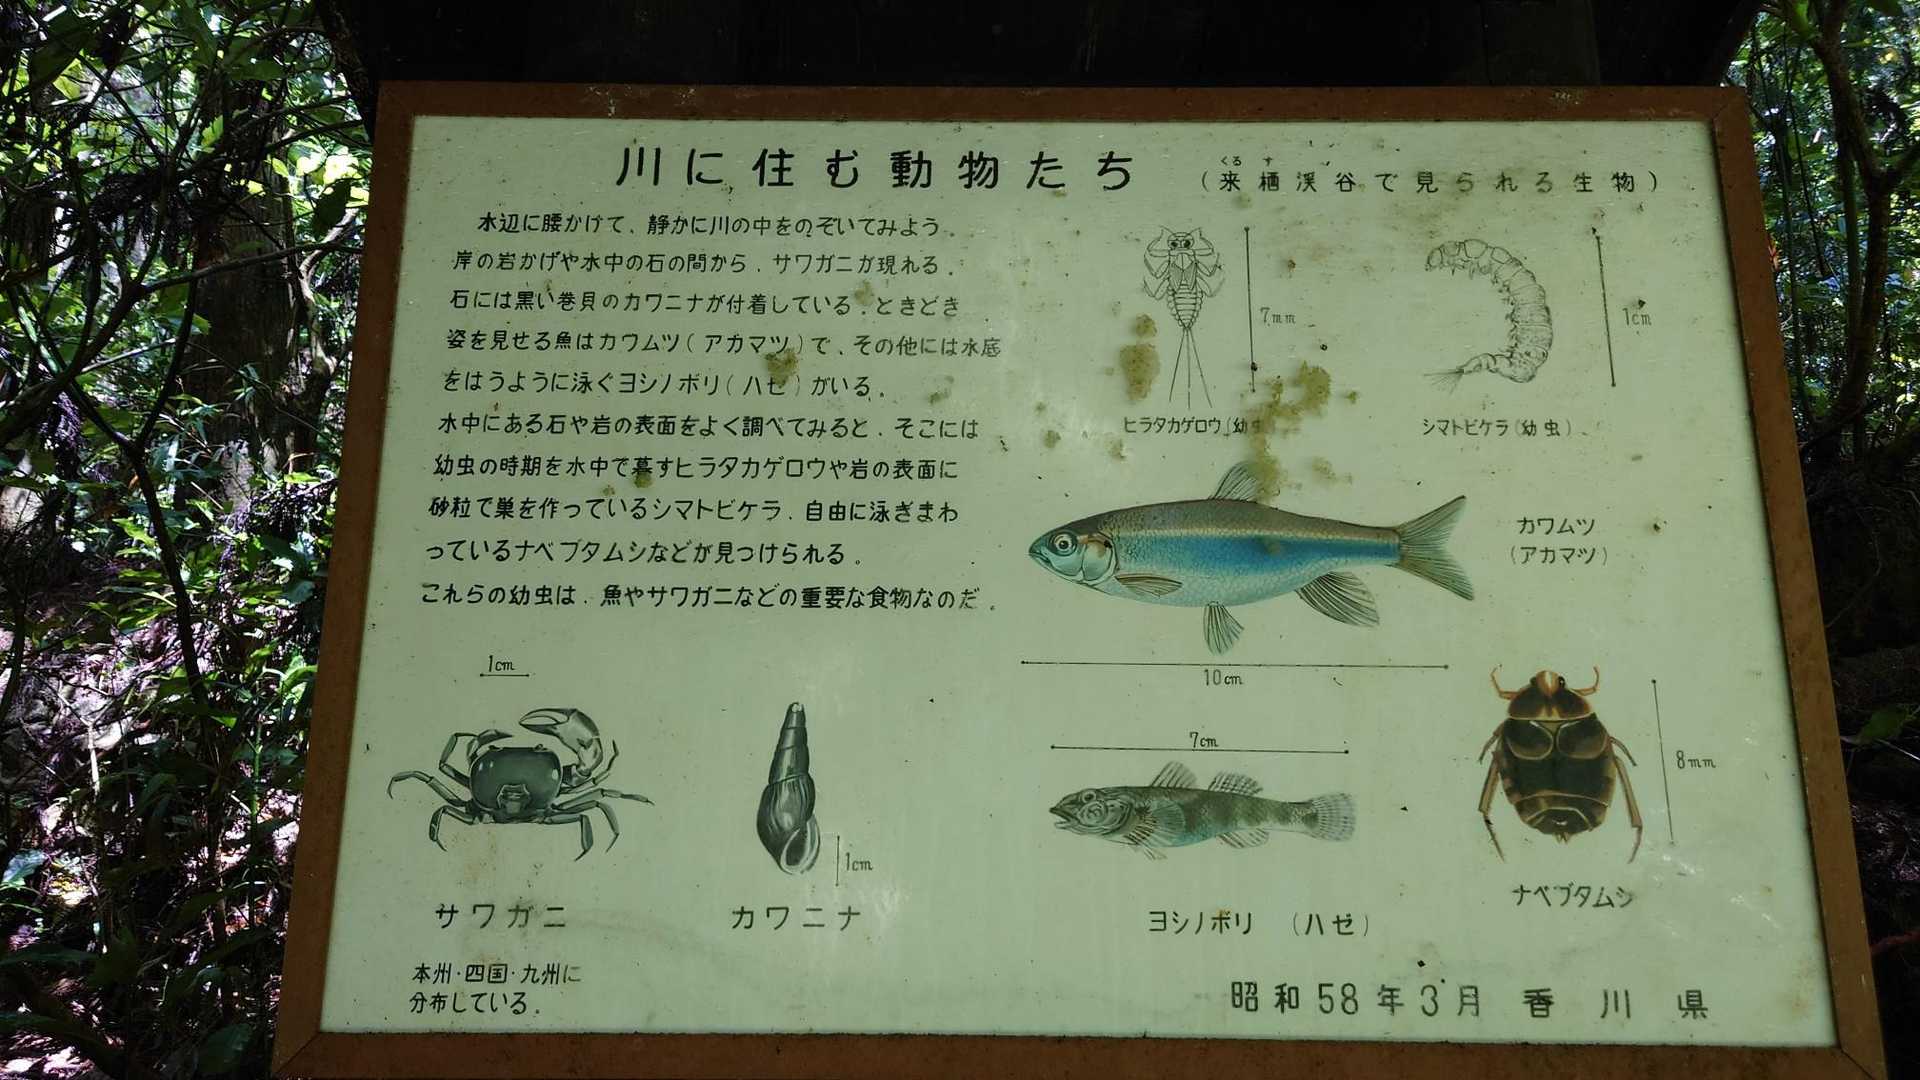 川に住む動物たち
くるす
（来栖渓谷で見られる生物）
水辺に腰かけて、静かに川の中をのぞいてみよう。
岸の岩かげや水中の石の間から、サワガニが現れる。
石には黒い巻貝のカワニナが付着している。ときどき
姿を見せる魚はカワムツ（アカマツ）で、その他には水底
をはうように泳ぐヨシノボリ（ハゼ）がいる。
水中にある石や岩の表面をよく調べてみると、そこには
幼虫の時期を水中で暮すヒラタカゲロウや岩の表面に
砂粒で巣を作っているシマトビケラ、自由に泳ぎまわ
っているナベブタムシなどが見つけられる。
これらの幼虫は、魚やサワガニなどの重要な食物なのだ。
7mm
ヒラタカゲロウ（幼虫
1cm
シマトビケラ（幼虫）
カワムツ
（アカマツ）
10cm
1cm
サワガニ
本州・四国・九州に
分布している。
1cm
カワニナ
7cm
ヨシノボリ （ハゼ）
8mm
ナベブタムシ
昭和58年3月 香川県